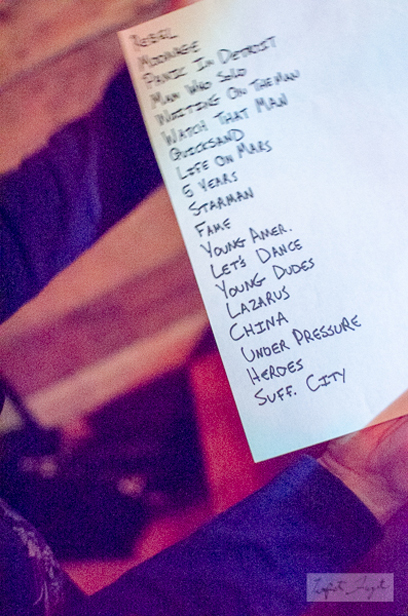 REBEL
MOONAGE
PANIC IN DETROIT
MAN WHO SOLD
WAITING ON THE MAN
WATCH THAT MAN
QUICKSAND
LIFE ON MARS
5 YEARS
STARMAN
FAME
YOUNG AMER.
LET'S DANCE
YOUNG DUDES
LAZARUS
CHINA
UNDER PRESSURE
HEROES
SUFF. CITY